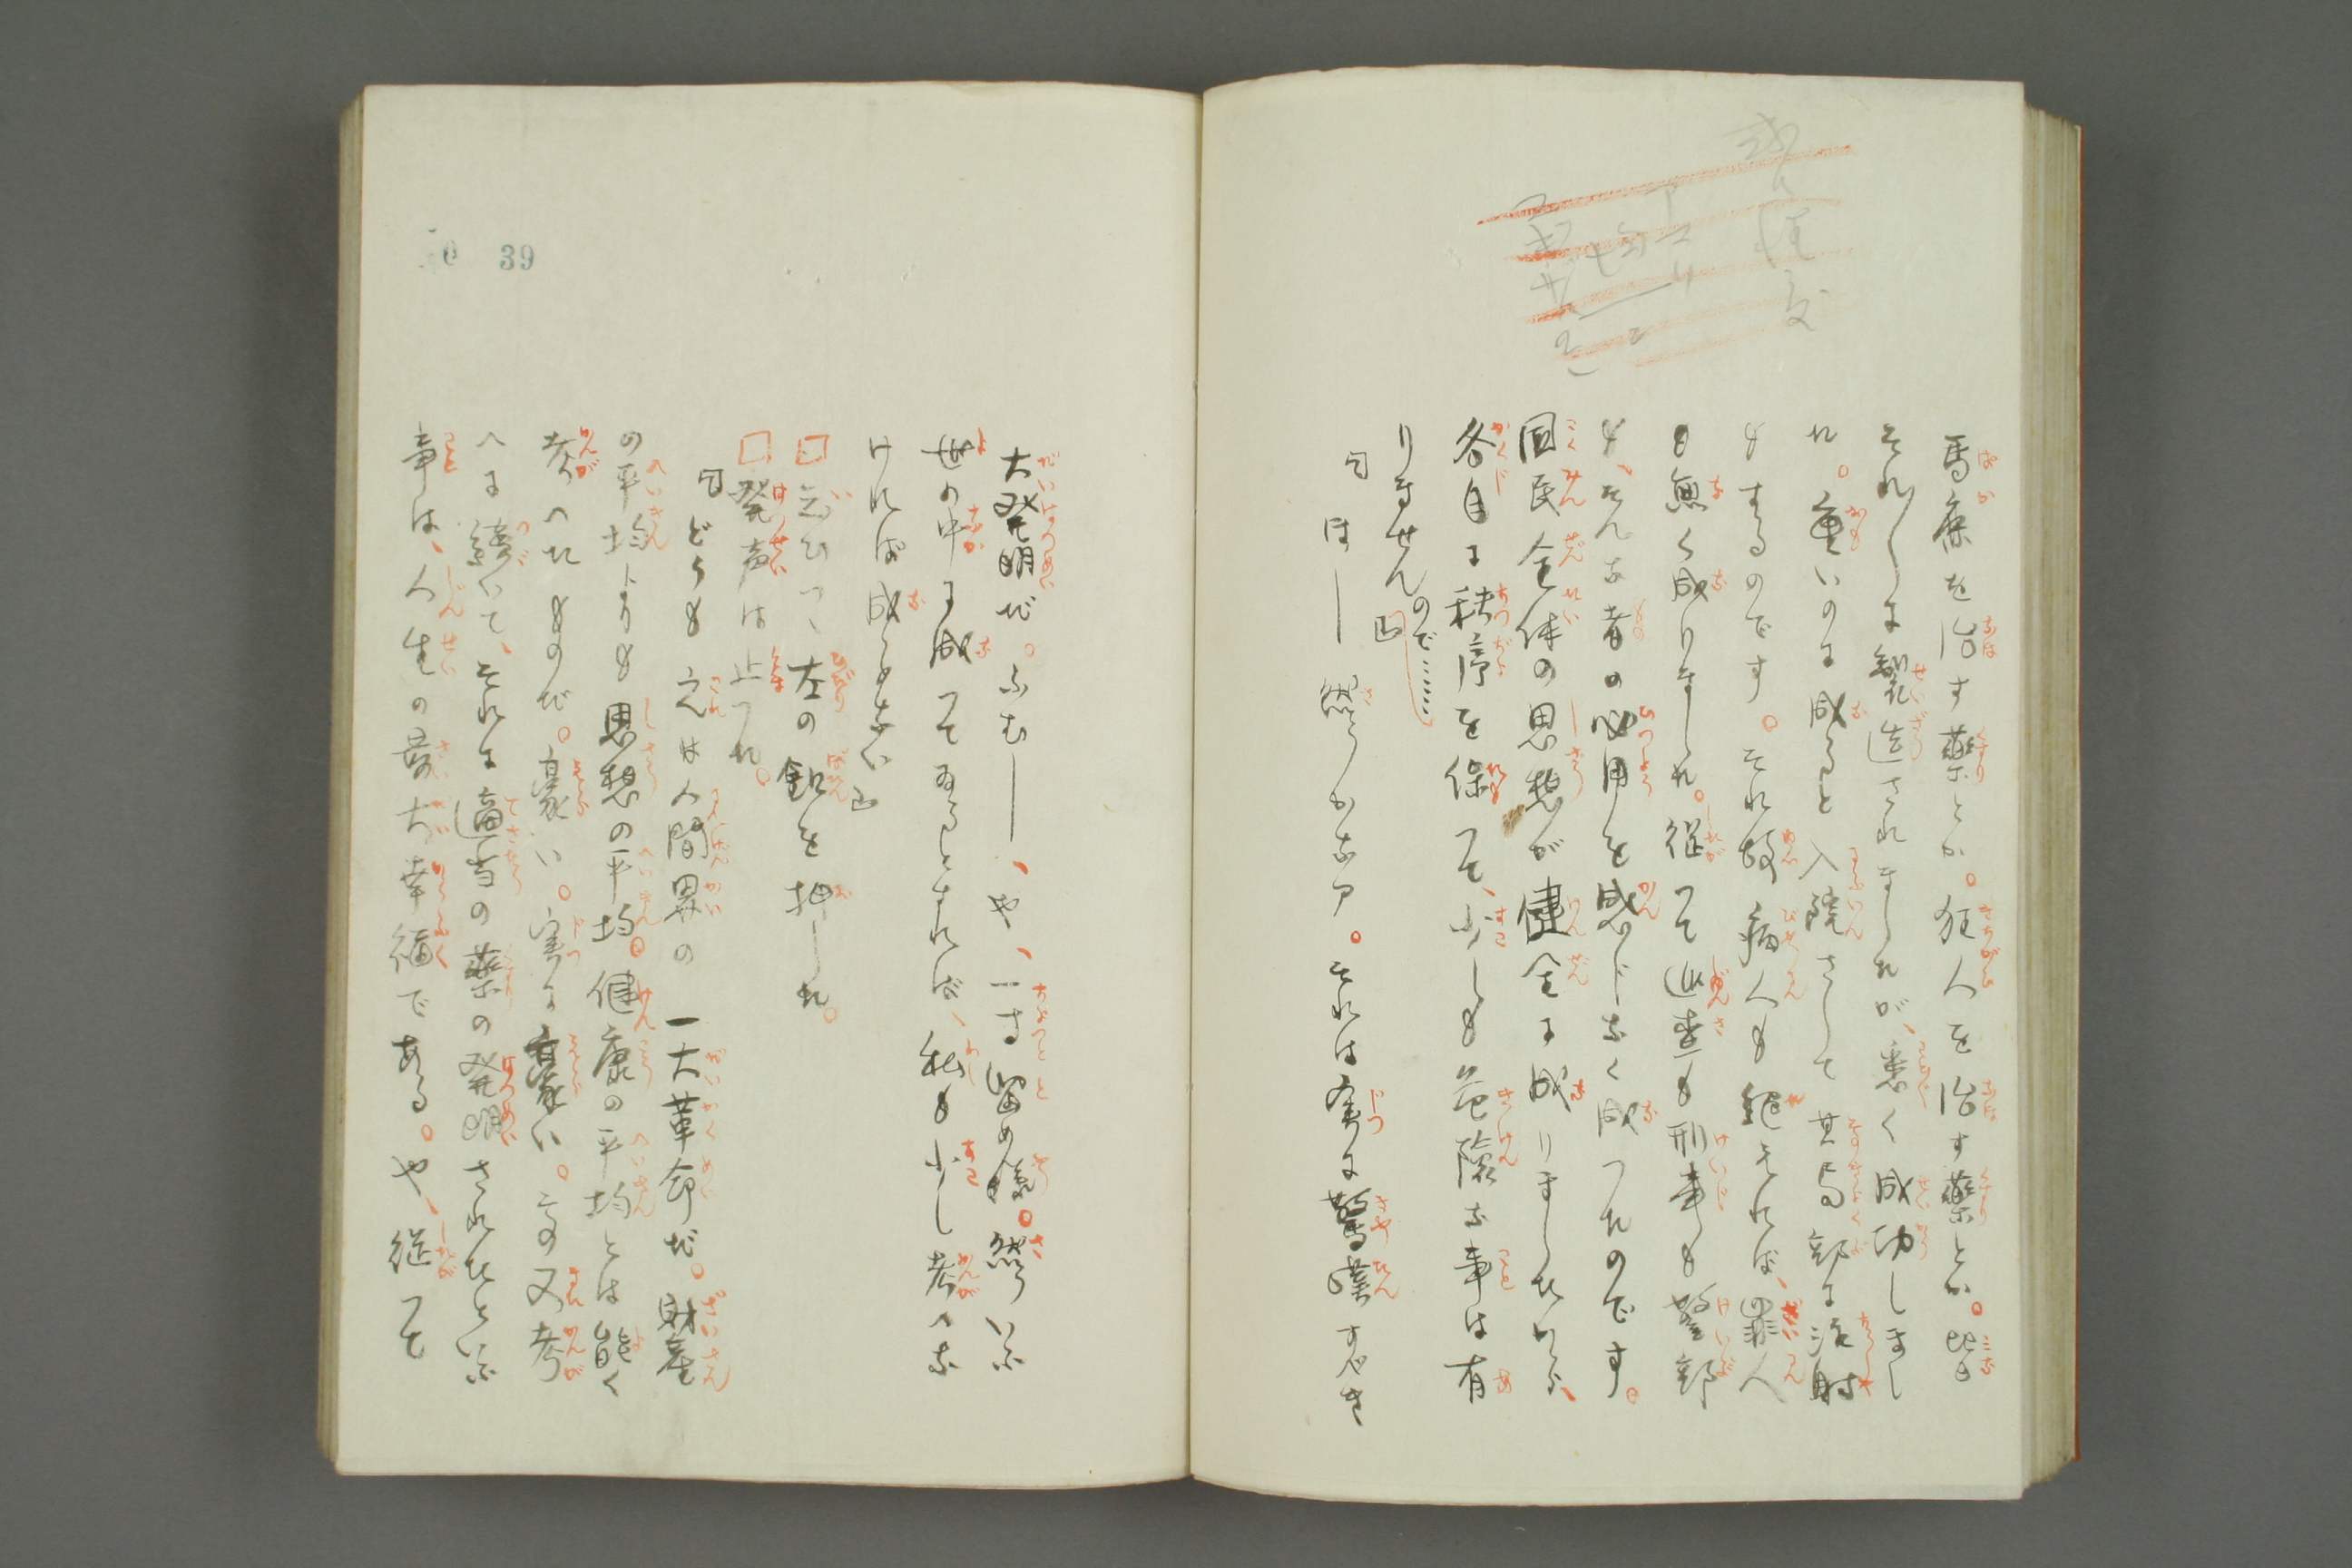 馬鹿を治す薬とか。狂人を治す薬とか。皆
それ〲に製造されましたが、悉く成功しまし
た。重いのに成ると入院さして其局部に注射
もするのです。それ故病人も絶えれば、罪人
も無く成りました。従つて巡査も刑事も警部
も、そんな者の必用を感じなく成つたのです。
国民全体の思想が健全に成りましたから、
各自に秩序を保つて、少しも危険な事は有
りませんので……」
「ほー然うかなア。それは実に驚嘆すべき
大発明だ。ふむー、や、一寸留め様。然ういふ
世の中に成つて居るとすれば、私も少し考へな
ければ成らない」
□云ひつゝ左の釦を押した。
□発声は止つた。
「どうも之は人間界の一大革命だ。財産
の平均よりも思想の平均。健康の平均とは能く
考へたものだ。豪い。実に豪い。その又考
へに続いて、それに適当の薬の発明されたといふ
事は、人生の最大幸福である。や、従つて
39